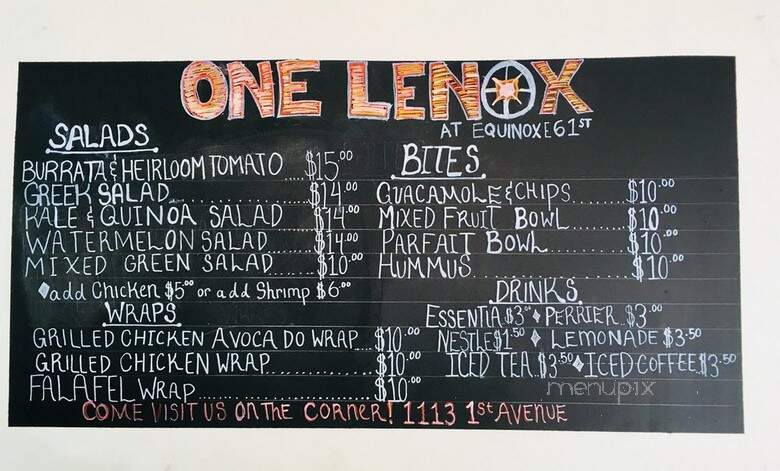 ONE LENOX
AT EQUINOX E 61ST
SALADS
BURRATA & HEIRLOOM TOMATO...$15.00
GREEK SALAD...$14.00
KALE & QUINOA SALAD $14.00
WATERMELON SALAD...$14.00
MIXED GREEN SALAD...$10.00
♦add Chicken $5.00 or add Shrimp $6.00
WRAPS
GRILLED CHICKEN AVOCADO WRAP...$10.00
GRILLED CHICKEN WRAP...$10.00
FALAFEL WRAP...$10.00
BITES
GUACAMOLE & CHIPS...$10.00
MIXED FRUIT BOWL...$10.00
PARFAIT BOWL...$10.00
HUMMUS...$10.00
DRINKS
ESSENTIA $3.00 ♦ PERRIER $3.00
NESTLE $1.50 ♦ LEMONADE $3.50
ICED TEA $3.50 ♦ ICED COFFEE $3.50
menupix
COME VISIT US ON THE CORNER! 1113 1st AVENUE